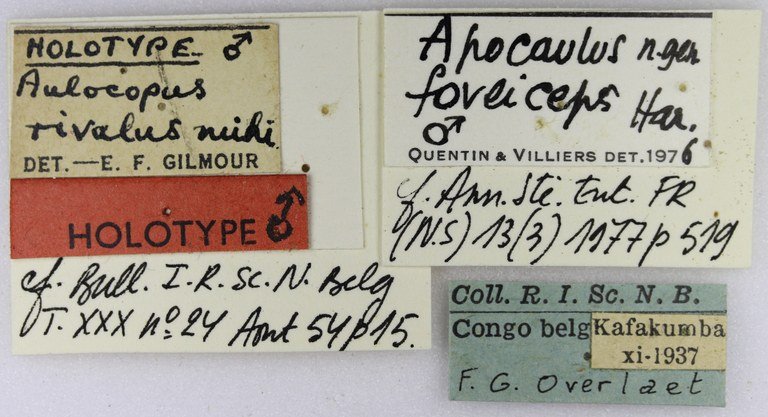 HOLOTYPE ♂
Aulocopus
rivalus mihi
DET.—E. F. GILMOUR
HOLOTYPE ♂
cf. Bull. I. R. Sc. N. Belg
T. XXX nº 24 Aout 54 p 15.
Apocaulus n.gen
foveiceps Har.
♂
QUENTIN & VILLIERS DET. 1976
cf. Ann. Ste. Ent. FR
(N.S) 13(3) 1977 p 519
Coll. R. I. Sc. N. B.
Congo belg Kafakumba
xi-1937
F. G. Overlaet